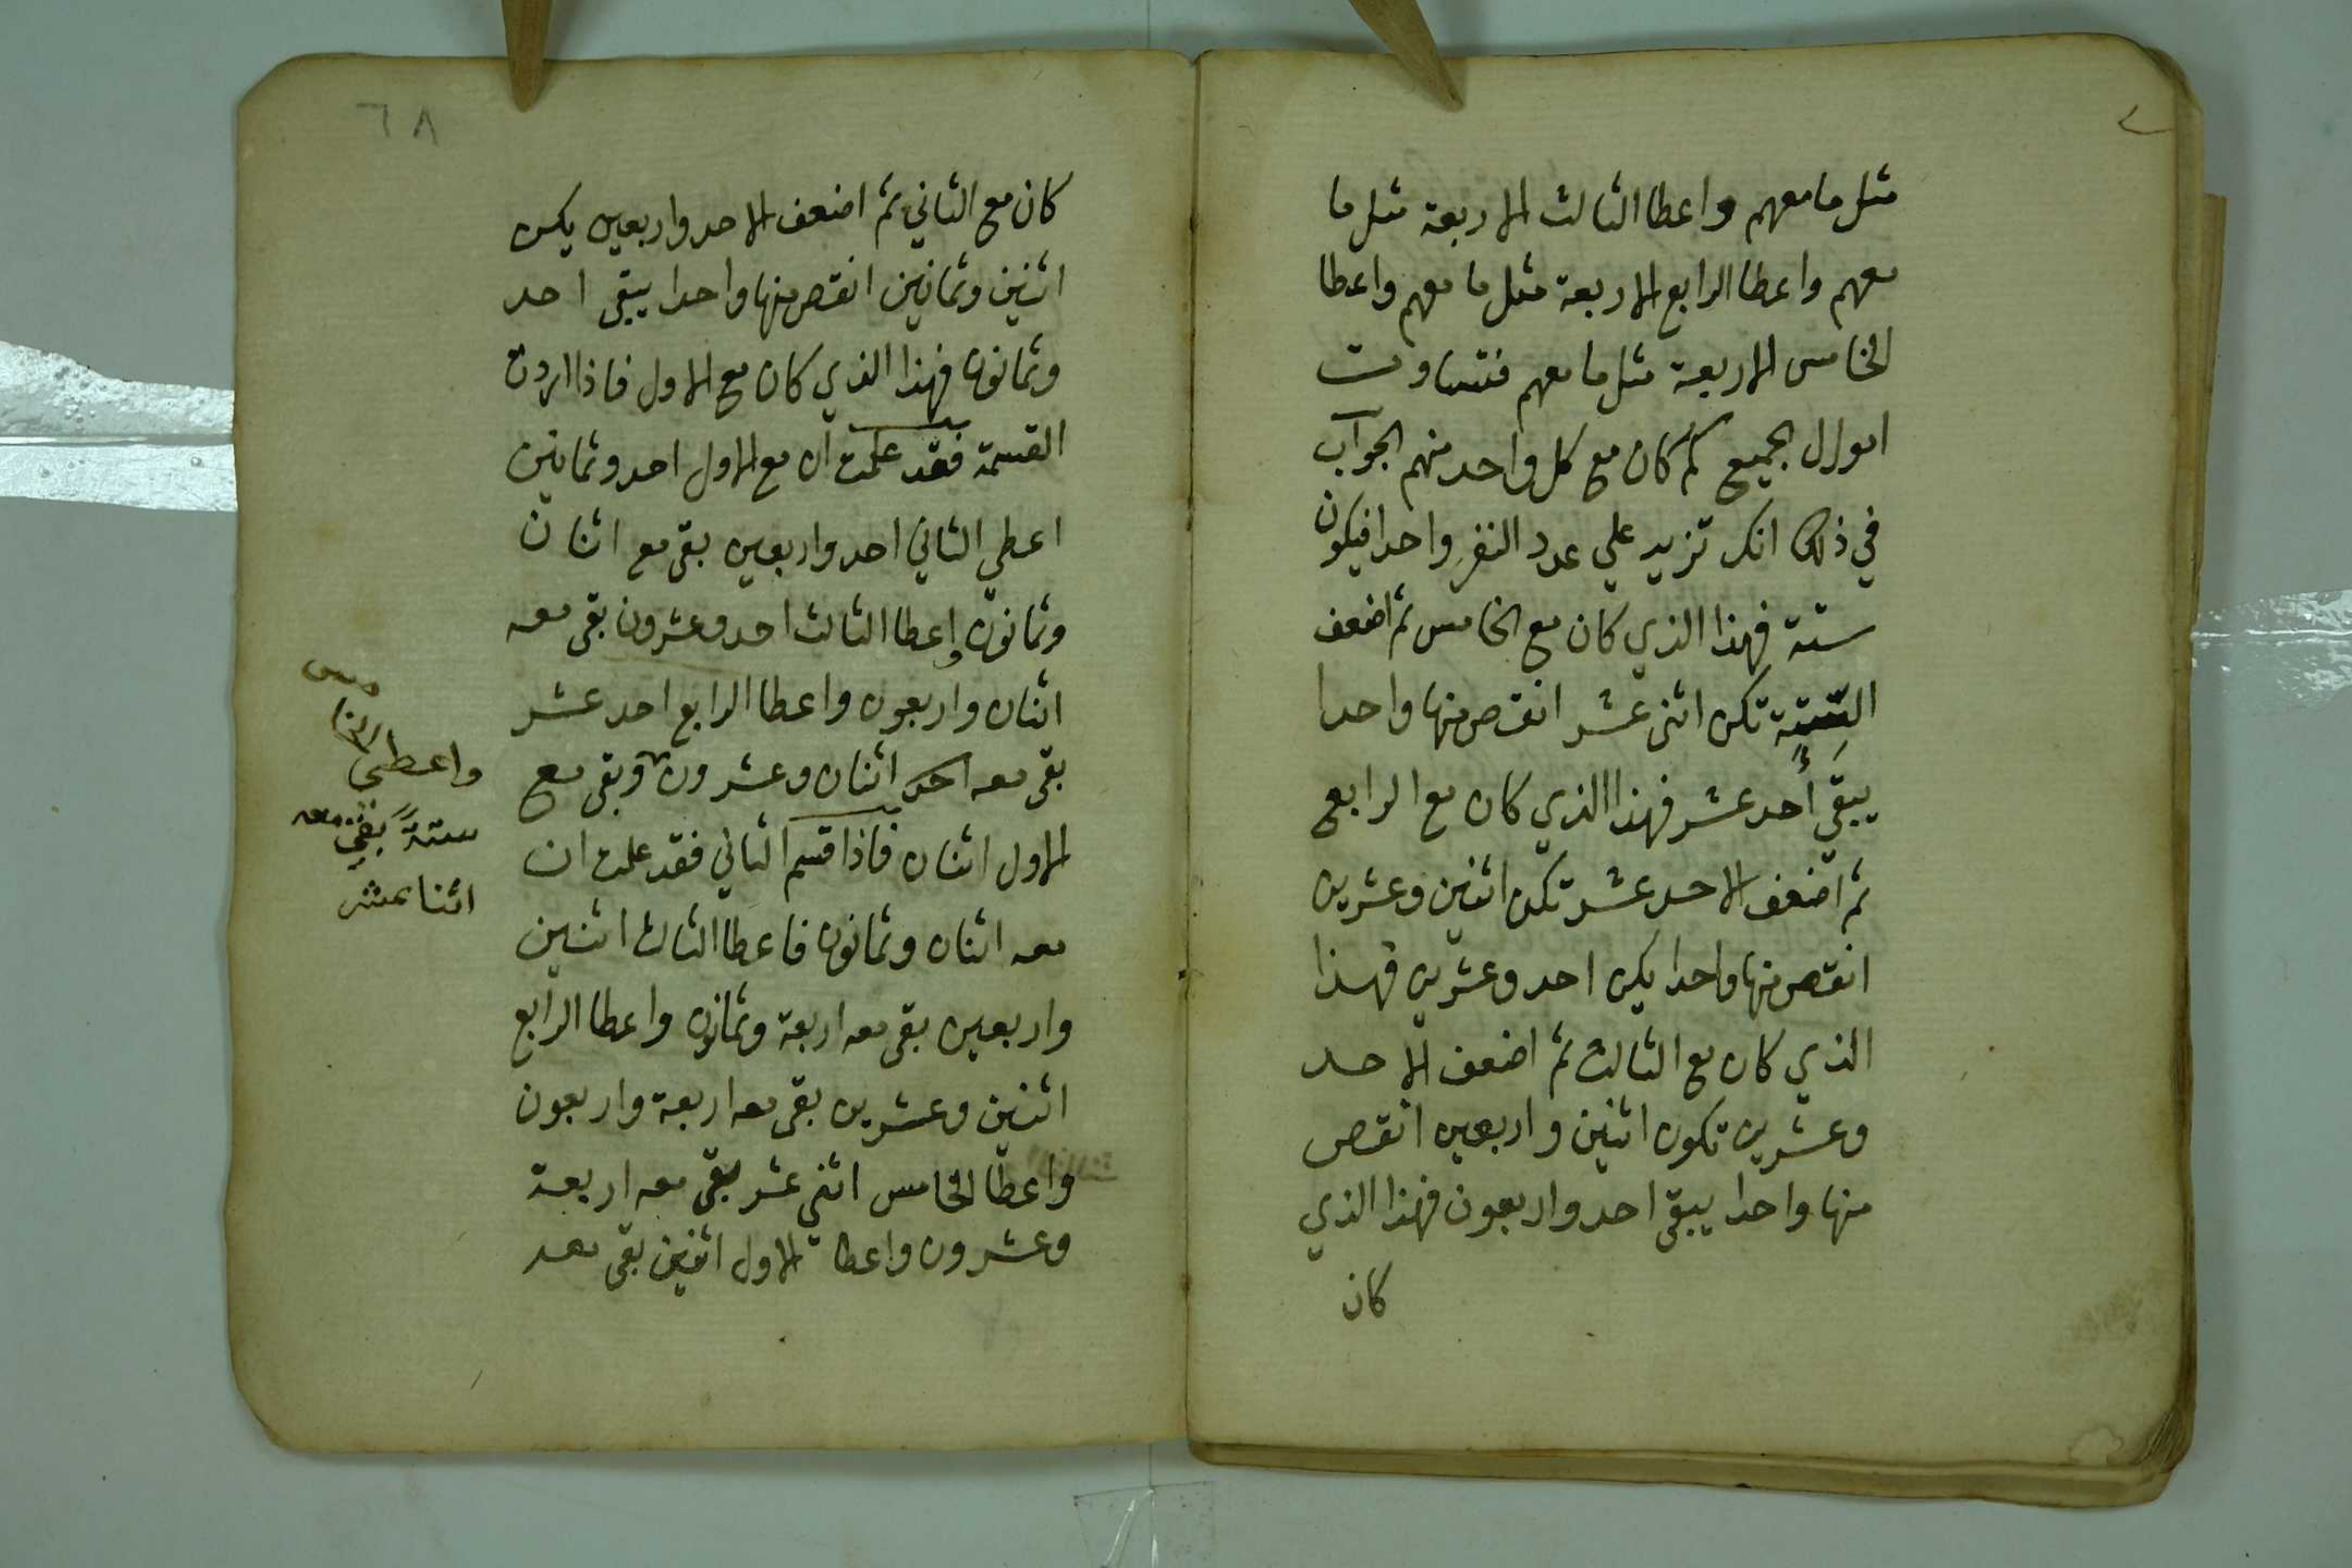 مثل ما معهم واعطا الثالث الاربعة مثل ما
معهم واعطا الرابع الاربعة مثل ما معهم واعطا
الخامس الاربعة مثل ما معهم فتساوت
اموال الجميع كم كان مع كل واحد منهم الجواب
في ذلك انك تزيد علي عدد النفر واحدا فيكون
ستة فهذا الذي كان مع الخامس ثم اضعف
الستة تكن اثنى عشر انقص منها واحدا
يبقي أحد عشر فهذا الذي كان مع الرابع
ثم اضعف الاحد عشر تكن اثنين وعشرين
انقص منها واحدا يكن احد وعشرين فهذا
الذي كان مع الثالث ثم اضعف الاحد
وعشرين تكون اثنين واربعين انقص
منها واحدا يبقى احد واربعون فهذا الذي
كان
٦٨
كان مع الثاني ثم اضعف الاحد واربعين يكن
اثنين وثمانين انقص منها واحدا يبقى احد
وثمانون فهذا الذي كان مع الاول فاذا اردت
القسمة فقد علمت ان مع الاول احد وثمانين
اعطي الثاني احد واربعين بقى مع اثنان
وثمانون واعطا الثالث احد وعشرون بقى معه
اثنان واربعون واعطا الرابع احد عشر
بقى معه اثنان وعشرون وبقى مع
الاول اثنان فاذا قسم الثاني فقد علمت ان
معه اثنان وثمانون فاعطا الثالث اثنين
واربعين بقى معه اربعة وثمانون واعطا الرابع
اثنين وعشرين بقى معه اربعة واربعون
واعطا الخامس اثني عشر بقى معه اربعة
وعشرون واعطا الاول اثنين بقى معه
واعطى
ستةً بقي معه
اثنا عشر